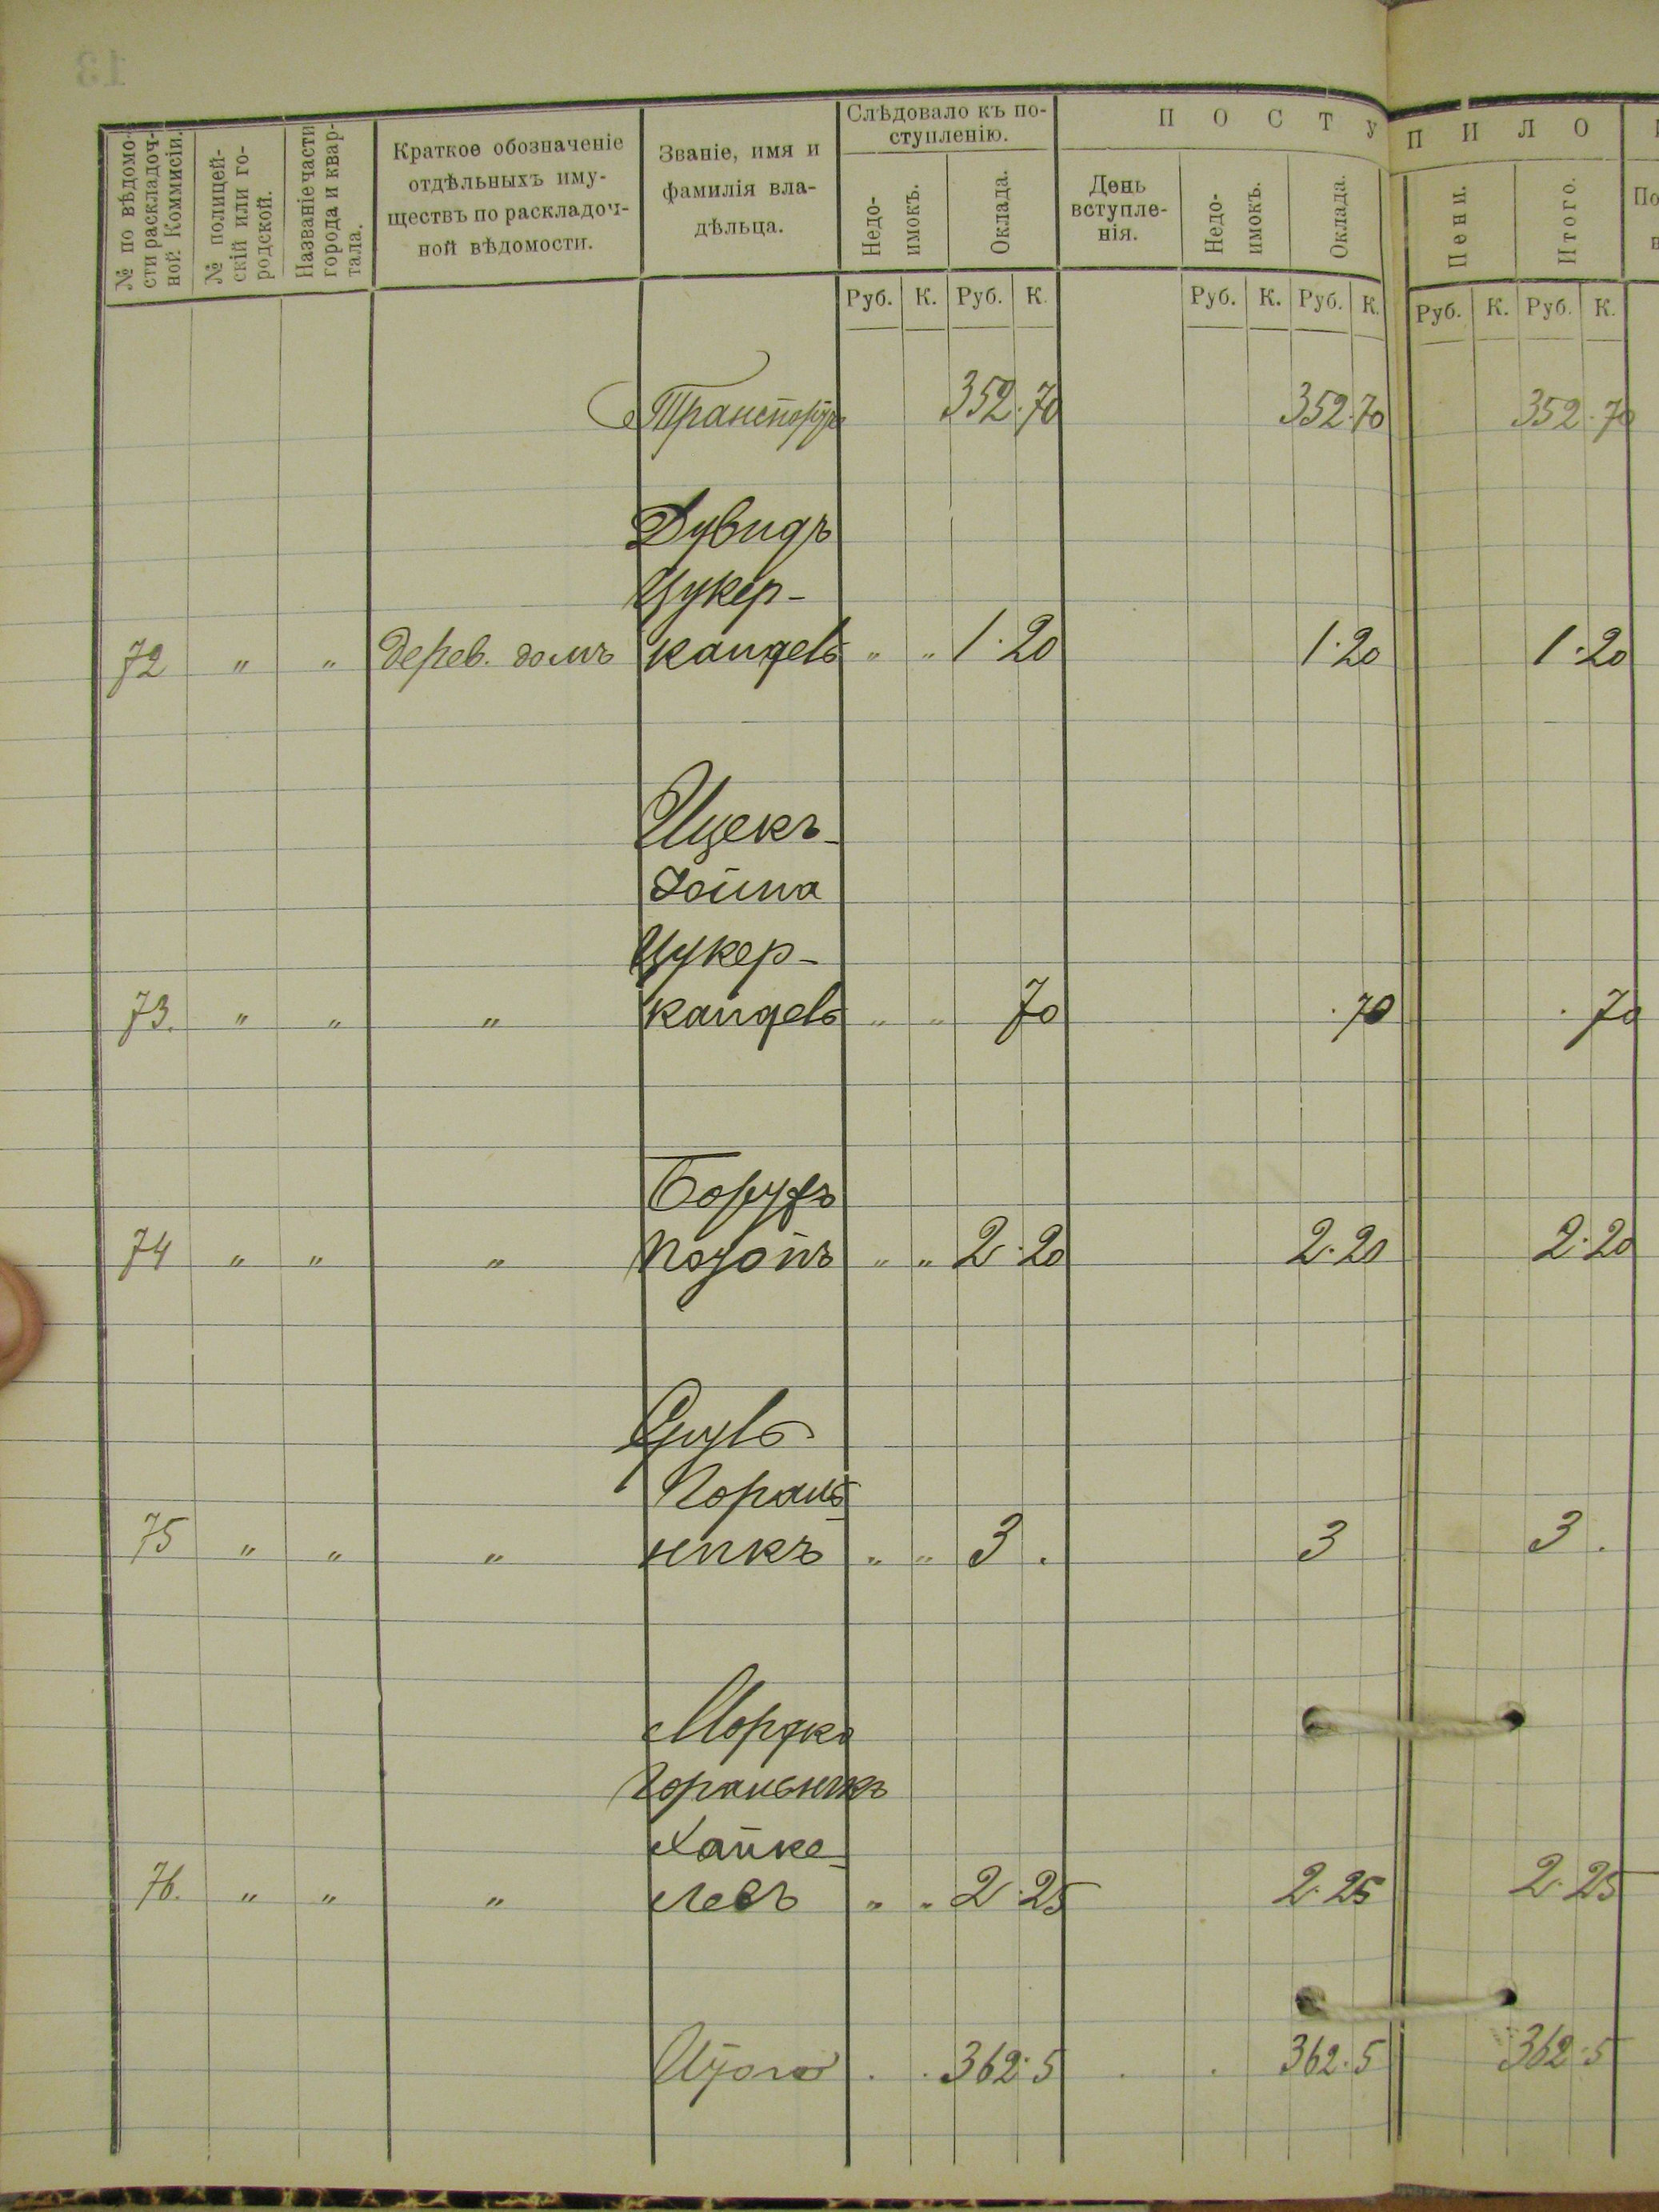 13
№ по вѣдомо-
сти раскладоч-
ной Коммисіи.
№ полицей-
скій или го-
родской.
Названіе части
города и квар-
тала.
Краткое обозначеніе
отдѣльныхъ иму-
ществъ по раскладоч-
ной вѣдомости.
Званіе, имя и
фамилія вла-
дѣльца.
Слѣдовало къ по-
ступленію.
Недо-
имокъ.
Оклада.
ПОСТУПИЛО
День
вступле-
нія.
Недо-
имокъ.
Оклада.
Пени.
Итого.
Руб. К. Руб. К. Руб. К. Руб. К. Руб. К. Руб. К.
Транспортъ 352.70 352.70 352.70
Дувидъ
Цукер-
72 " " дерев. домъ кандель " " 1.20 1.20 1.20
Ицекъ-
Іойна
Цукер-
73. " " " кандель " " 70 .70 . 70
Борухъ
74 " " " " " 2.20 2.20 2.20
75 " " " никъ " " 3 . 3 3 .
Мордко
Хайке-
76. " " " левъ " " 2.25 2.25 2.25
Итого . . 362.5 . . 362.5 362.5